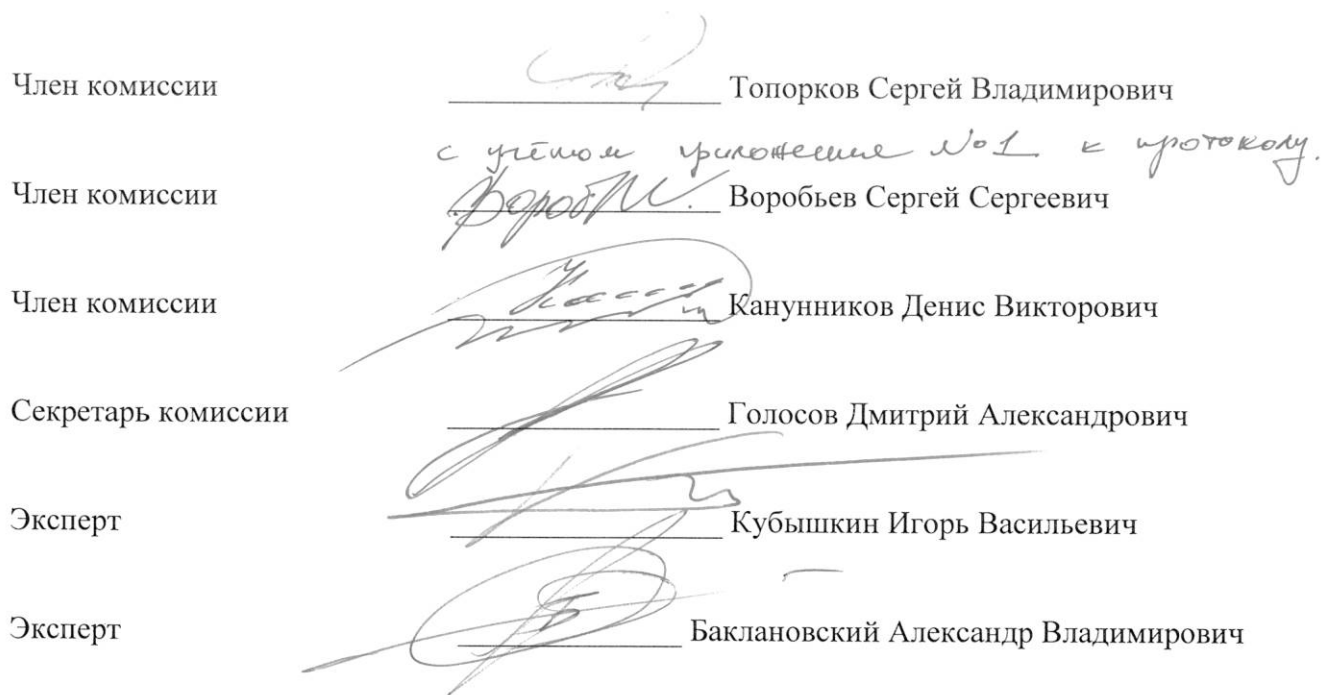 Член комиссии Топорков Сергей Владимирович
с учётом приложения №1 к протоколу.
Член комиссии Воробьев Сергей Сергеевич
Член комиссии Канунников Денис Викторович
Секретарь комиссии Голосов Дмитрий Александрович
Эксперт Кубышкин Игорь Васильевич
Эксперт Баклановский Александр Владимирович